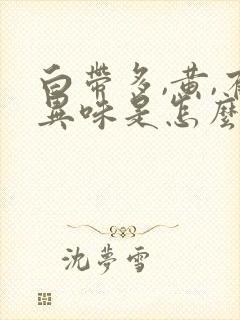 白帶多,黄,有
異味是怎麼
沈夢雪